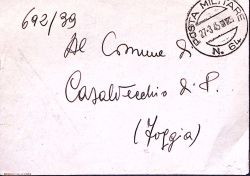 692/39
POSTA MILITARE
N. 64
Al Comune di
Casalvecchio di P.
(Foggia)